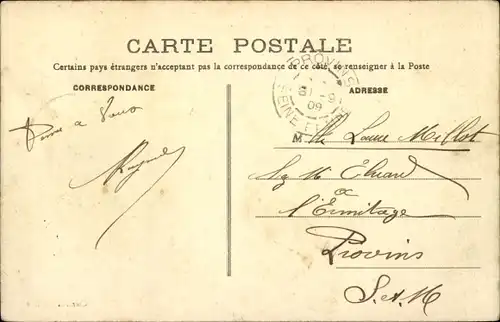 CARTE POSTALE
Certains pays étrangers n'acceptant pas la correspondance de ce côté, se renseigner à la Poste
CORRESPONDANCE
ADRESSE
PROVINS
SEINE-ET-M
09
à Vous
Mlle Laure Millot
M. Eluard
à
l'Ermitage
Provins
S. et M.